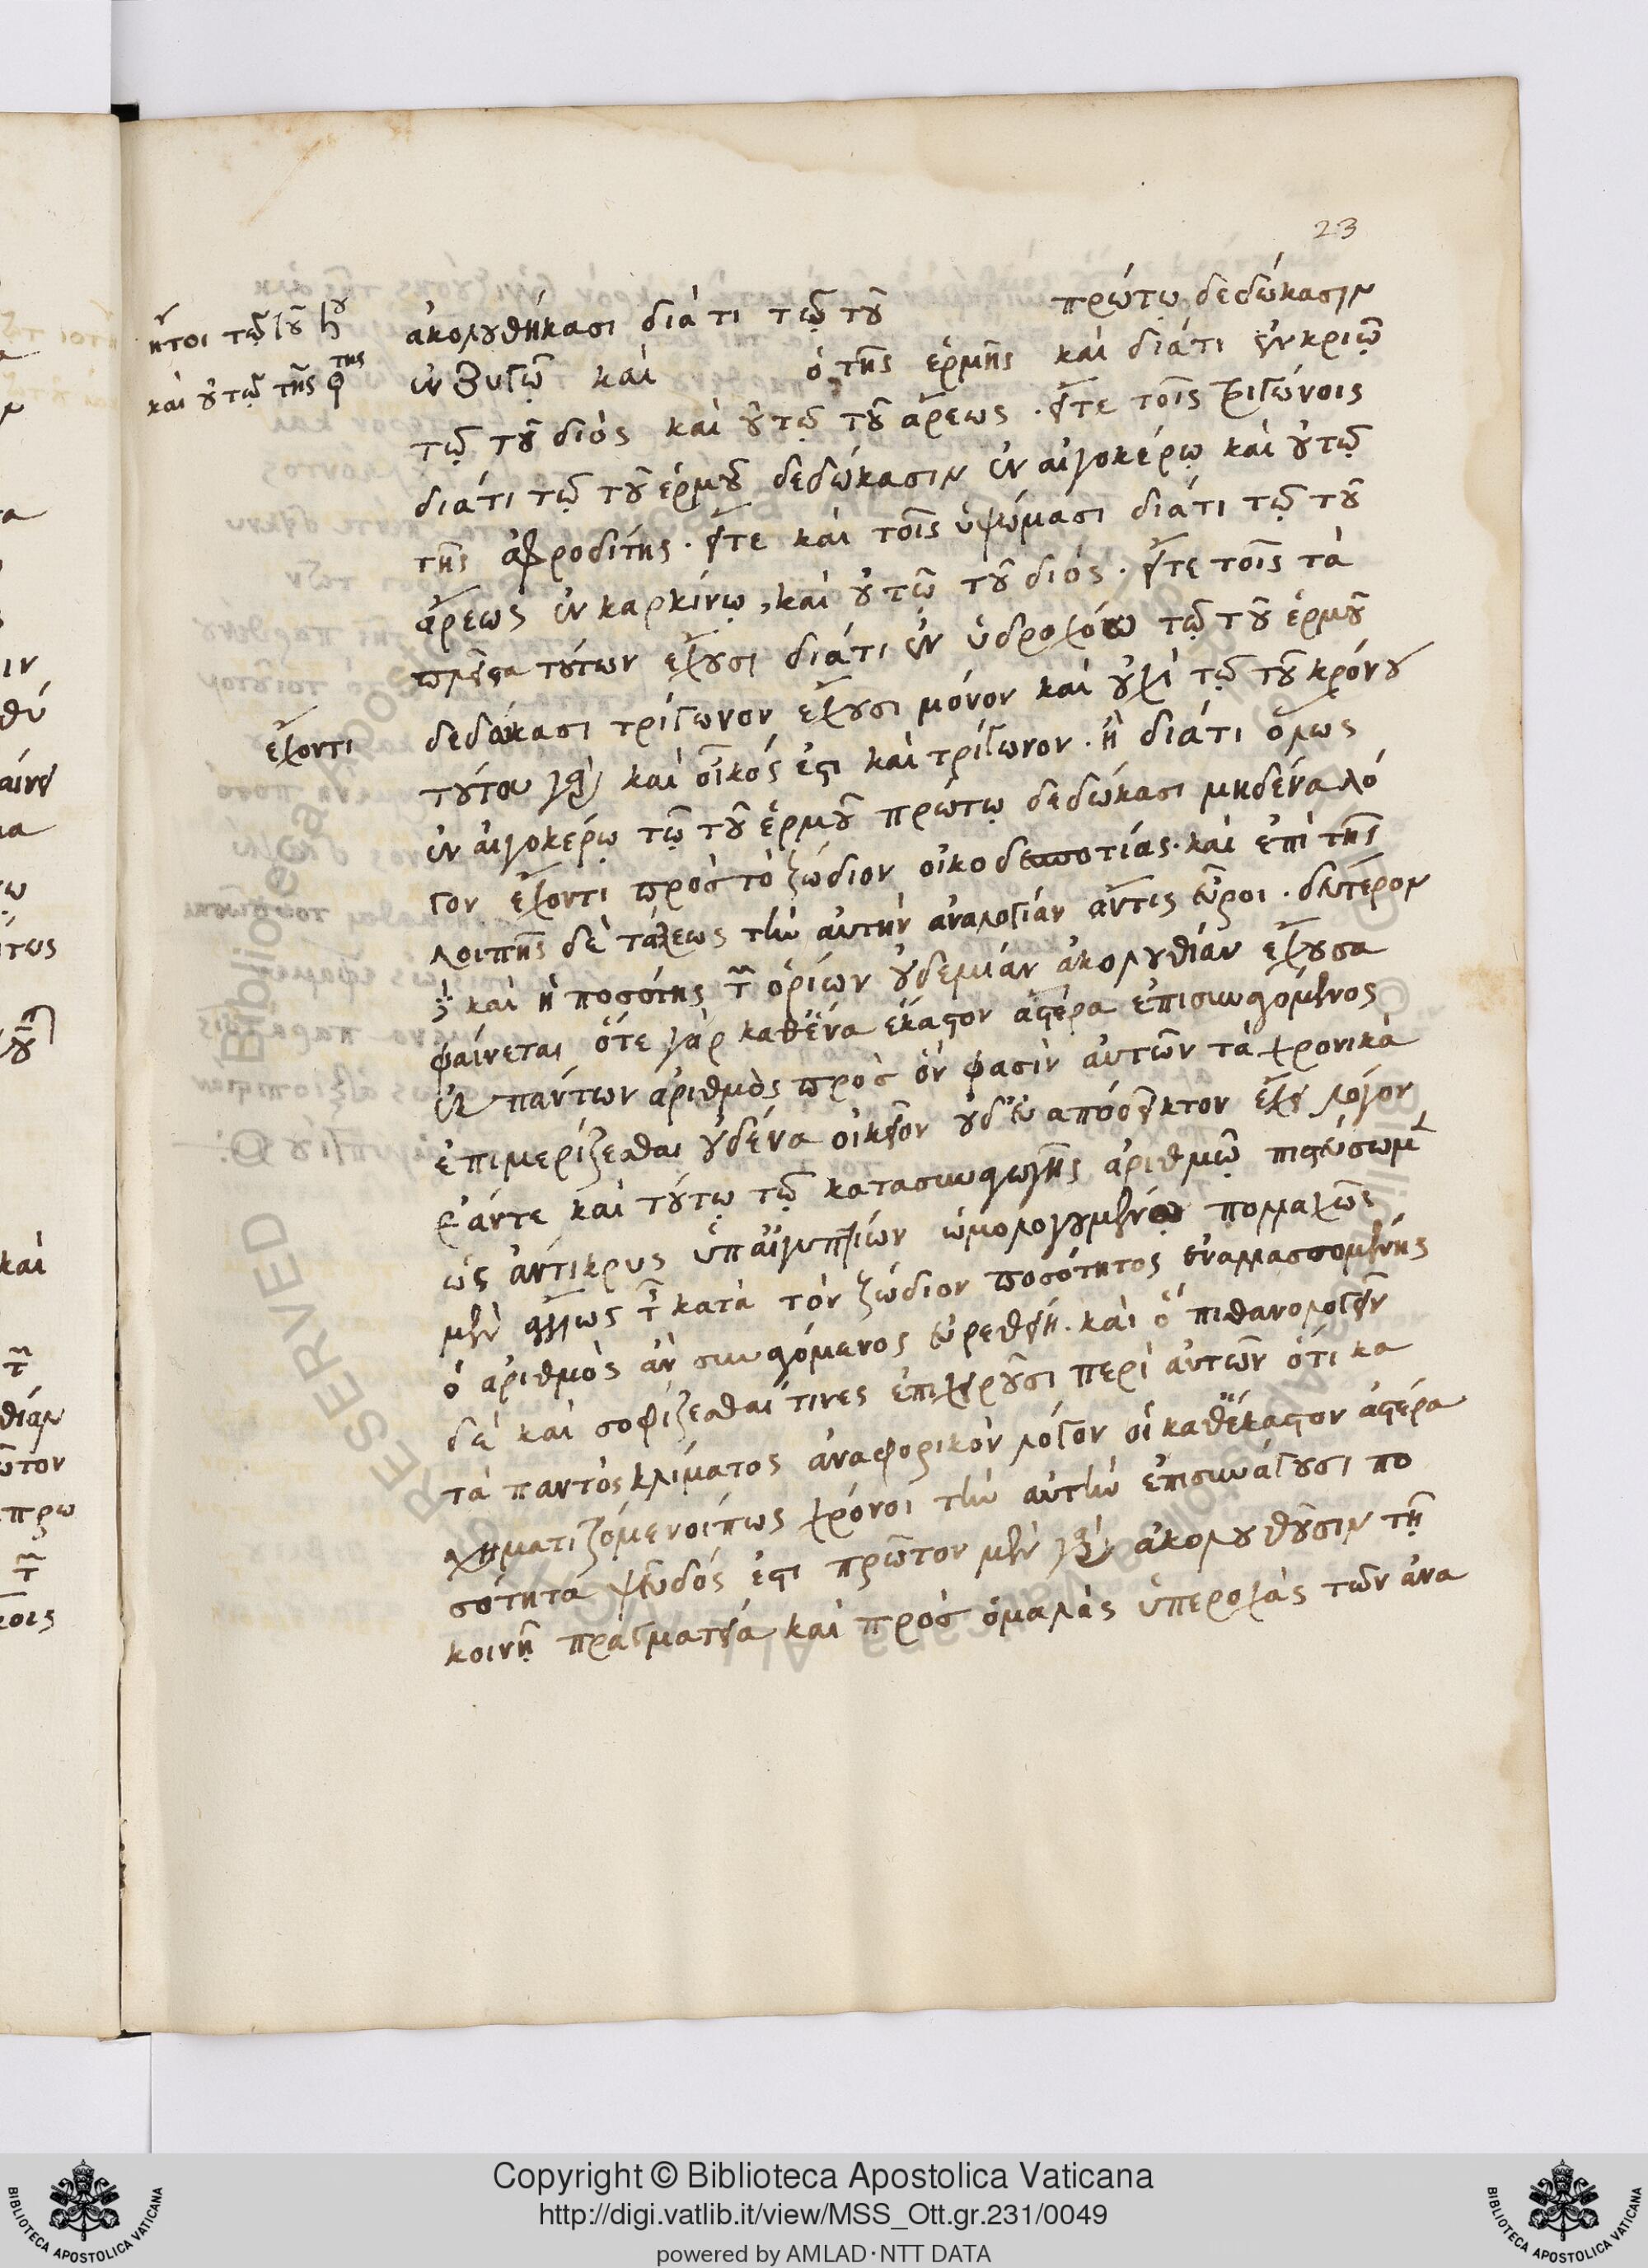 23
ἤτοι τῶ τοῦ ♄ου
καὶ οὐ τῶ τῆς ♀της
ἀκολουθήκασι διάτι τῶ τοῦ πρώτω δεδώκασιν
ἐν ζυγῶ καὶ ὁ τῆς ἑρμῆς καὶ διάτι ἐν κριῶ
τῶ τοῦ διὸς καὶ οὐ τῶ τοῦ ἄρεως. εἴτε τοῖς τριγώνοις
διάτι τῶ τοῦ ἑρμοῦ δεδώκασιν ἐν αἰγοκέρω καὶ οὐ τῶ
τῆς ἀφροδίτης. εἴτε καὶ τοῖς ὑψώμασι διάτι τῶ τοῦ
ἄρεως ἐν καρκίνω, καὶ οὐ τῶ τοῦ διός. εἴτε τοῖς τὰ
πλεῖστα τούτων ἔχουσι διάτι ἐν ὑδροχόω τῶ τοῦ ἑρμοῦ
δεδώκασι τρίγωνον ἔχουσι μόνον καὶ οὐχὶ τῶ τοῦ κρόνου
ἔχοντι
τούτου γὰρ καὶ οἶκός ἐστι καὶ τρίγωνον. ἢ διάτι ὅλως
ἐν αἰγοκέρω τῶ τοῦ ἑρμοῦ πρώτω δεδώκασι μηδένα λό
γον ἔχοντι πρὸς τὸ ζώδιον οἰκοδεσποτίας. καὶ ἐπὶ τῆς
λοιπῆς δὲ τάξεως τὴν αὐτὴν ἀναλογίαν ἄντις εὕροι. δεύτερον
δὲ καὶ ἡ ποσότης τῶν ὁρίων οὐδεμίαν ἀκολουθίαν ἔχουσα
φαίνεται ὅτε γὰρ καθ' ἕνα ἕκαστον ἀστέρα ἐπισυναγόμενος
ἐκ πάντων ἀριθμὸς πρὸς ὅν φασὶν αὐτῶν τὰ χρονικὰ
ἐπιμερίζεσθαι οὐδένα οἰκεῖον οὐδ' εὐαπόδεικτον ἔχει λόγον
ἐάντε καὶ τούτω τῶ κατασυναγωγῆς ἀριθμῶ πιστεύσωμεν
ὡς ἄντικρυς ὑπ' αἰγυπτίων ὡμολογουμένω πολλαχῶς
μὲν ἄλλως τῆς κατὰ τὸν ζώδιον ποσότητος ἐναλλασσομένης
ὁ ἀριθμὸς ἂν συναγόμενος εὑρεθείη. καὶ ὃ πιθανολογεῖν
δὲ καὶ σοφίζεσθαί τινες ἐπιχειροῦσι περὶ αὐτῶν ὅτι κα
τὰ παντὸς κλίματος ἀναφορικὸν λόγον οἱ καθ' ἕκαστον ἀστέρα
χηματιζόμενοίπως χρόνοι τὴν αὐτὴν ἐπισυνάγουσι πο
σότητα ψεῦδός ἐστι πρῶτον μὲν γὰρ ἀκολουθοῦσιν τῆ
κοινῆ πραγματεία καὶ πρὸς ὁμαλὰς ὑπεροχὰς τῶν ἀνα
RESERVED © Biblioteca Apostolica Vaticana
Copyright © Biblioteca Apostolica Vaticana
http://digi.vatlib.it/view/MSS_Ott.gr.231/0049
powered by AMLAD·NTT DATA
BIBLIOTECA APOSTOLICA VATICANA
BIBLIOTECA APOSTOLICA VATICANA